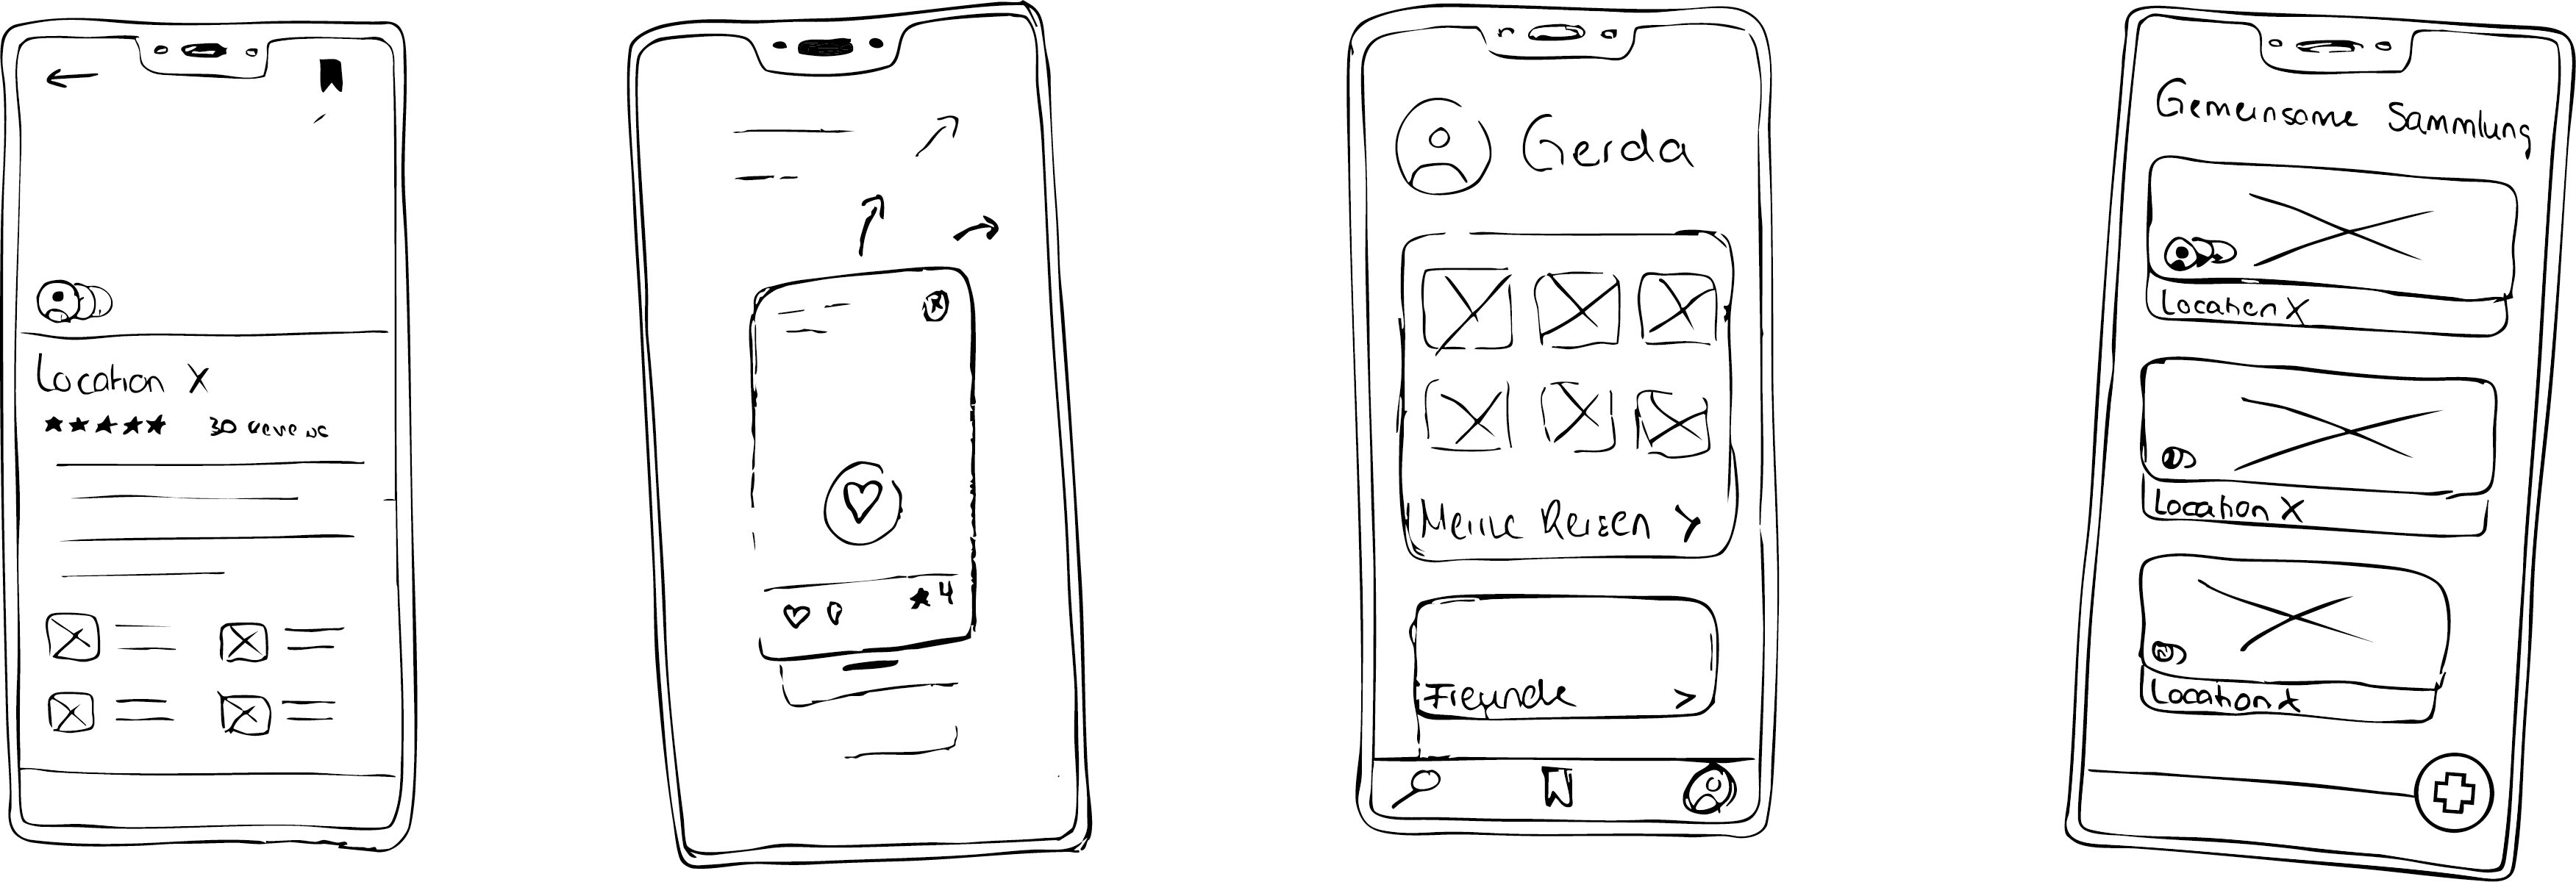 Location X
30 reviews
4
Gerda
Meine Reisen >
Freunde >
Gemeinsame Sammlung
Location X
Location X
Location X